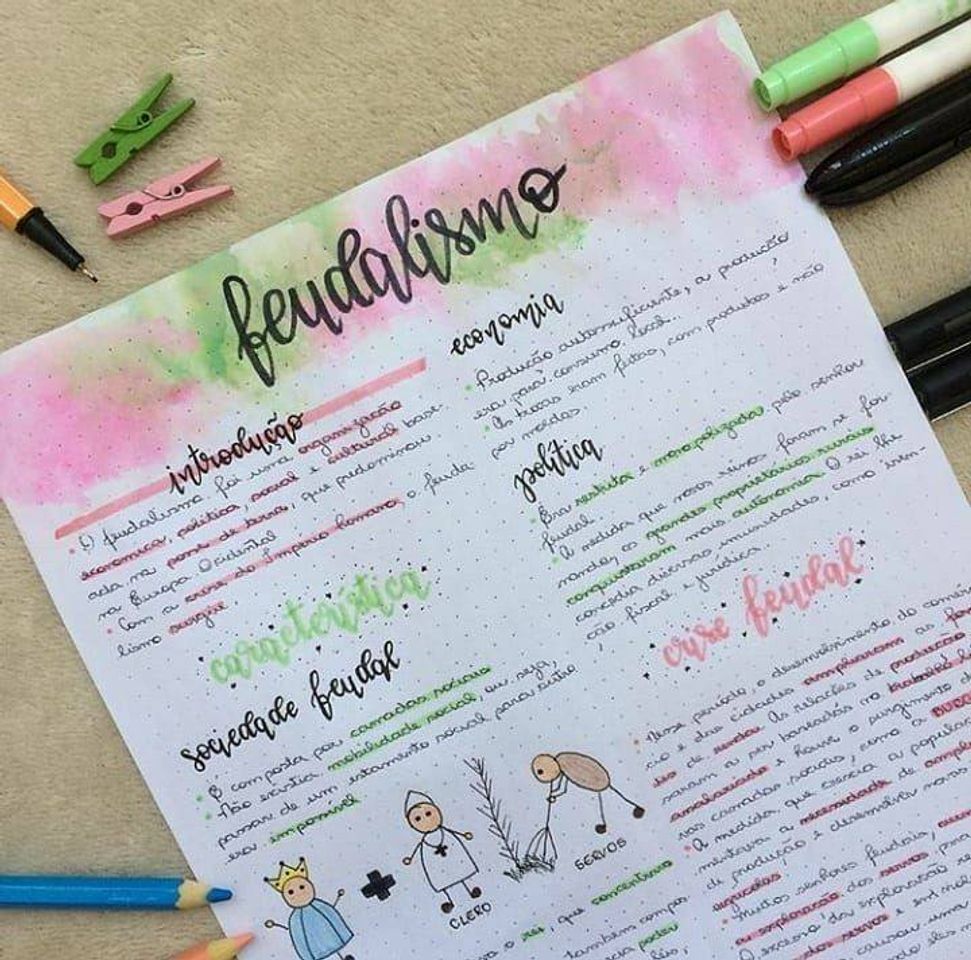 feudalismo
introdução
• O feudalismo foi uma organização
econômica, política, social e cultural base-
ada na posse de terra, que predominou
na Europa Ocidental.
• Com a crise do Império Romano, o feuda-
lismo surgiu
característica
sociedade feudal
• É composta por camadas sociais
• Não existia mobilidade social, ou seja,
passar de um estamento social para outro
era impossível
CLERO
SERVOS
o rei, que concentrava
também
poder
economia
• Produção autossuficiente, a produção
era para consumo local.
• As trocas eram feitas, com produtos e não
por moedas.
política
• Era restrita e monopolizada pelo senhor
feudal.
• A medida que novos reinos foram se for-
mando, os grandes proprietários rurais
conquistaram mais autonomia. O rei lhe
concedia diversas imunidades, como isen-
ção fiscal e jurídica.
crise feudal
• Nesse período, o desenvolvimento do
cio e das cidades ampliaram as
de renda. As relações de produção
saram a ser baseadas no trabalho
assalariado e houve o surgimento de
vas camadas sociais, como a
• A medida que crescia a
mentava a necessidade de
de produção e desenvolver
agrícolas
• Muitos senhores feudais,
a exploração dos servos,
O excesso da exploração
dos servos e
causou uma